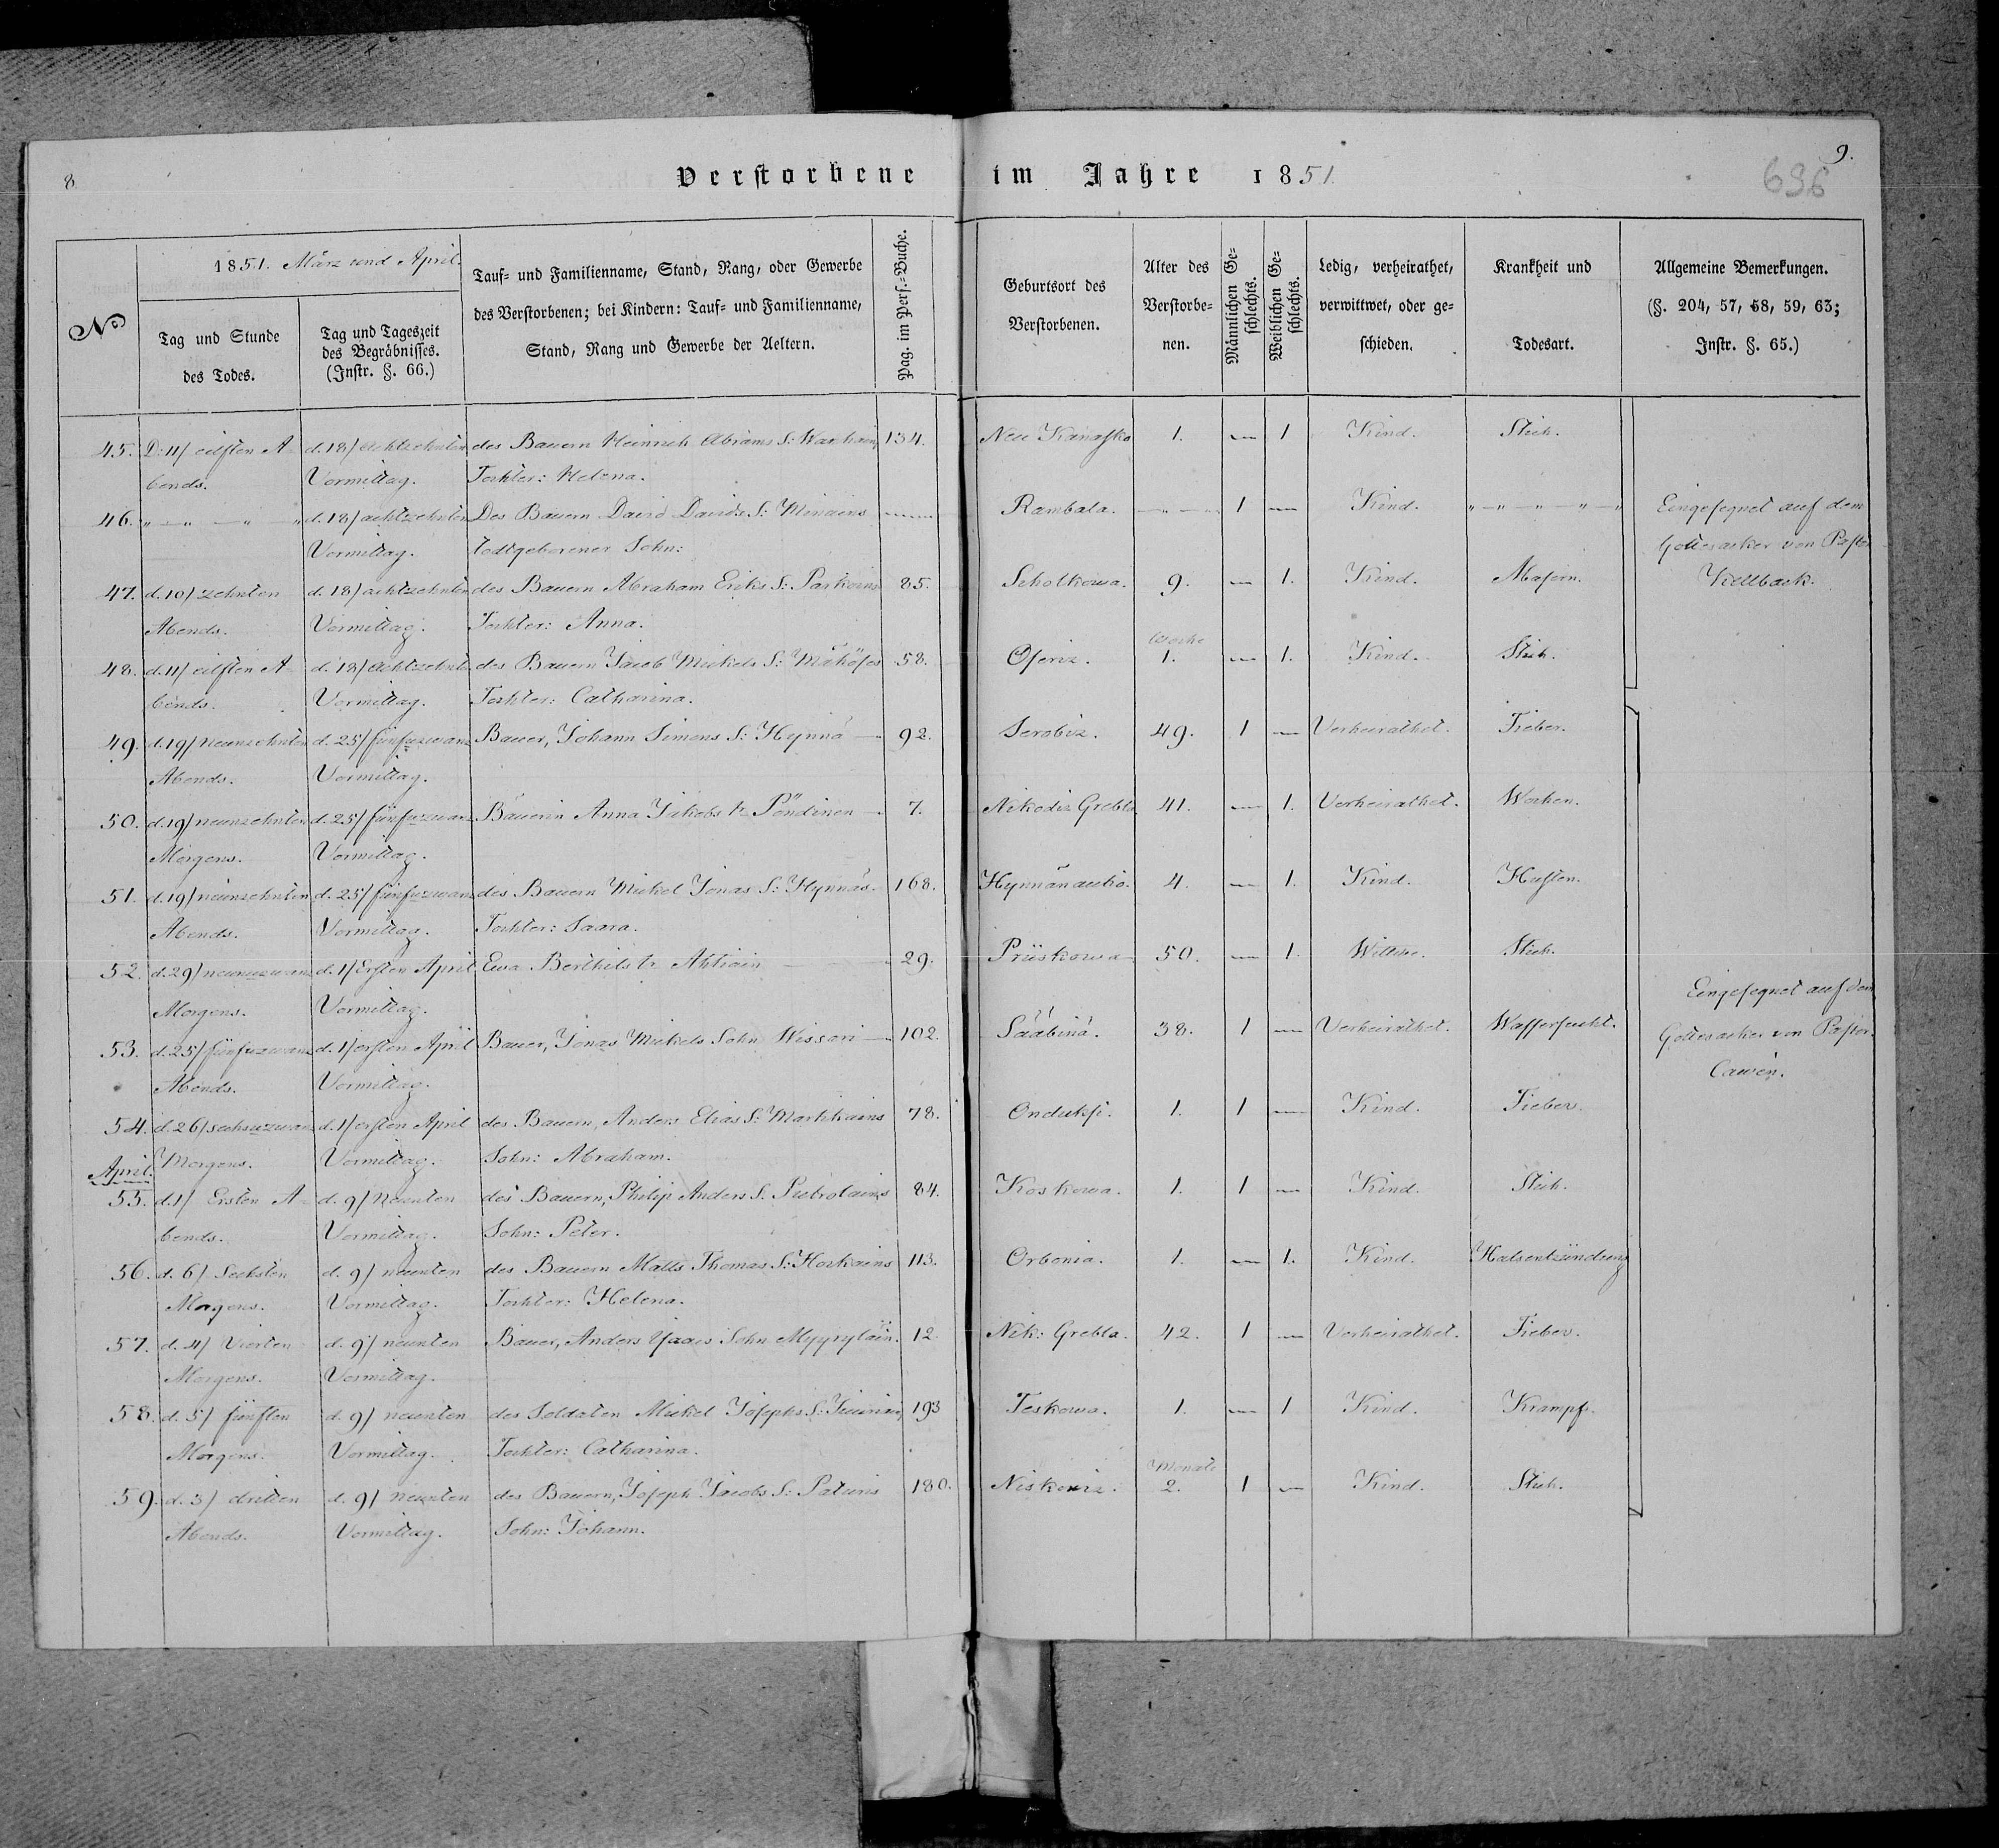 8.
Verstorbene im Jahre 1851.
9.
696
No
1851. März und April.
Tag und Stunde
des Todes.
Tag und Tageszeit
des Begräbnisses.
(Instr. §. 66.)
Tauf- und Familienname, Stand, Rang, oder Gewerbe
des Verstorbenen; bei Kindern: Tauf- und Familienname,
Stand, Rang und Gewerbe der Aeltern.
Pag. im Pers.-Buche.
Geburtsort des
Verstorbenen.
Alter des
Verstorbe-
nen.
Männlichen Ge-
schlechts.
Weiblichen Ge-
schlechts.
Ledig, verheirathet,
verwittwet, oder ge-
schieden.
Krankheit und
Todesart.
Allgemeine Bemerkungen.
(§. 204, 57, 58, 59, 63;
Instr. §. 65.)
45. D. 11/ eilften A- d. 18/ achtzehnten des Bauern Heinrich Abrams S: 134. Neu 1. — 1 Kind. Stich.
bends. Vormittag. Tochter: Helena.
46. „ — „ — „ „ d. 18/ achtzehnten Des Bauern David Davids S: Minains — Rambala. — „ — „ 1 — Kind. „ — „ — „ — „ — „ Eingesegnet auf dem
Vormittag. todtgeborener Sohn: Gottesacker von Pastor
47. d. 10/ zehnten d. 18/ achtzehnten des Bauern Abraham Eriks S: Parkoins 85. Scholkowa. 9. — 1. Kind. Masern. Kellback.
Abends. Vormittag. Tochter: Anna.
Woche
48. d. 11/ eilften A- d. 18/ achtzehnten des Bauern Jacob Mickels S: 58. Oseriz. 1. — 1. Kind. Stich.
bends. Vormittag. Tochter: Catharina.
49. d. 19/ neunzehnten d. 25/ fünfuzwanz Bauer, Johann Simons S: Hynnä — 92. Serobiz. 49. 1 — Verheirathet. Fieber.
Abends. Vormittag.
50. d. 19/ neunzehnten d. 25/ fünfuzwanz Bäuerin Anna Jakobs tr Pöndinen — 7. Nikodiz Grebla 41. — 1. Verheirathet. Wochen.
Morgens. Vormittag.
51. d. 19/ neunzehnten d. 25/ fünfuzwanz des Bauern Mickel Jonas S: Hynnäs 168. Hynnänautio. 4. — 1. Kind. Husten.
Abends. Vormittag. Tochter: Saara.
52. d. 29/ neunuzwanz d. 1/ Ersten April Ewa Berthils tr. Ahtiain — 29. Priiskowa 50. — 1. Wittwe. Stich.
Morgens. Vormittag. Eingesegnet auf dem
53. d. 25/ fünfuzwanz d. 1/ ersten April Bauer, Jonas Mickels Sohn Wissari — 102. Sääbinä. 38. 1 — Verheirathet. Wassersucht. Gottesacker von Pastor
Abends. Vormittag. Cawén.
54. d. 26/ sechsuzwanz d. 1/ ersten April des Bauern, Anders Elias S: Martikains 78. Onduksi. 1. 1 — Kind. Fieber.
April. Morgens. Vormittag. Sohn: Abraham.
55. d. 1/ Ersten A- d. 9/ Neunten des Bauern, Philip Anders S. Putrolains 84. Koskowa. 1. 1 — Kind. Stich.
bends. Vormittag. Sohn: Peter.
56. d. 6/ Sechsten d. 9/ neunten des Bauern Matts Thomas S: Horkains 113. Orbonia. 1. — 1. Kind. Halsentzündung
Morgens. Vormittag. Tochter: Helena.
57. d. 4/ Vierten d. 9/ neunten Bauer, Anders Isaacs Sohn Myyryläin. 12. Nik: Grebla. 42. 1 — Verheirathet. Fieber.
Morgens. Vormittag.
58. d. 5/ fünften d. 9/ neunten des Soldaten Mickel Josephs S: 193 Teskowa. 1. — 1 Kind. Krampf.
Morgens. Vormittag. Tochter: Catharina.
Monate
59. d. 3/ dritten d. 9/ neunten des Bauern, Joseph Jacobs S: Paturis 180. Niskowiz. 2. 1 — Kind. Stich.
Abends. Vormittag. Sohn: Johann.